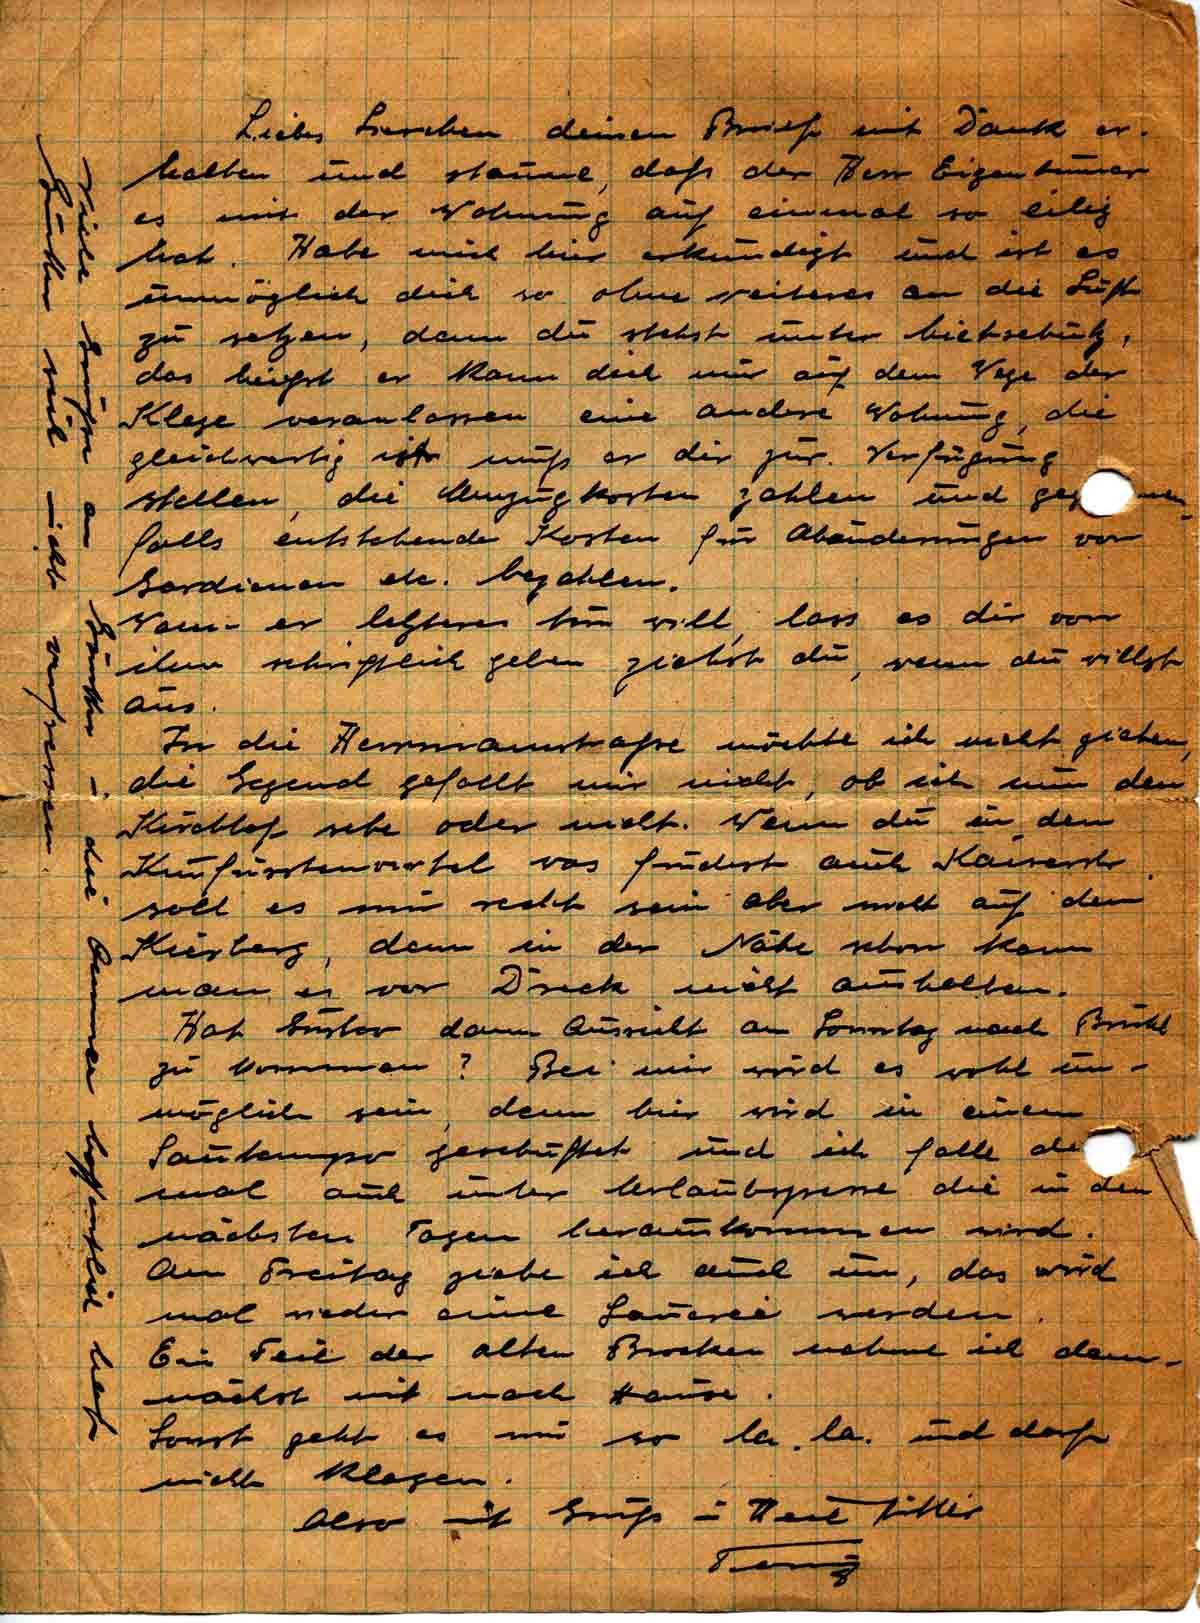 Liebes Lieschen deinen Brief mit Dank er-
halten und staune, daß der Herr Eigentümer
es mit der Wohnung auf einmal so eilig
hat. Habe mich hier erkundigt und ist es
unmöglich dich so ohne weiteres an die Luft
zu setzen, denn du stehst unter Mietschutz,
das heißt er kann dich nur auf dem Wege der
Klage veranlassen eine andere Wohnung, die
gleichwertig ist muß er dir zur Verfügung
stellen, die Umzugkosten zahlen und
falls entstehende Kosten für Abänderungen von
Gardienen etc. bezahlen.
Wenn er letzteres tun will, lass es dir von
ihm schriftlich geben ziehst du, wenn du willst
aus.
In die Herrmanstraße möchte ich nicht ziehen,
die Gegend gefällt mir nicht, ob ich nun den
Kirchhof sehe oder nicht. Wenn du in dem
Kurfürstenviertel was findest auch Kaiserstr.
soll es mir recht sein aber nicht auf dem
Kierberg, denn in der Nähe schon kann
man es vor Dreck nicht aushalten.
Hat Gustav dann Aussicht an Sonntag nach Brühl
zu kommen? Bei mir wird es wohl un-
möglich sein, denn hier wird in einem
Sautempo geschuftet und ich falle
mal auch unter Urlaubssperre die in den
nächsten Tagen herauskommen wird.
Am Freitag ziehe ich auch um, das wird
mal wieder eine Sauerei werden.
Ein Teil der alten Brocken nehme ich dem-
nächst mit nach Hause.
Sonst geht es mir so la. la. und darf
nicht klagen.
Also mit Gruß u Heil Hitler
Viele Grüße an - die Männer hoffentlich
mich nicht vergessen.